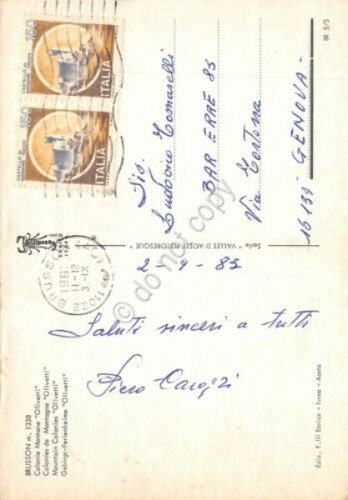 BRUSSON m. 1338
Colonie Montane "Olivetti"
Colonies de Montagne "Olivetti"
Mountain Colonies "Olivetti"
Gebirgs-Ferienheime "Olivetti"
2-9-83
Saluti sinceri a tutti
Piero
Serie "VALLEE D'AOSTE PITTORESQUE"
Ediz. F.lli Enrico - Ivrea - Aosta
BR 5/5
150
ITALIA
CASTELLO DI
150
ITALIA
CASTELLO DI
11022 BRUSSO
198
11-12
3-IX
Sig.
Ludovico Tomaselli
BAR ERRE 85
Via Tortona
16139- GENOVA-
© do not copy